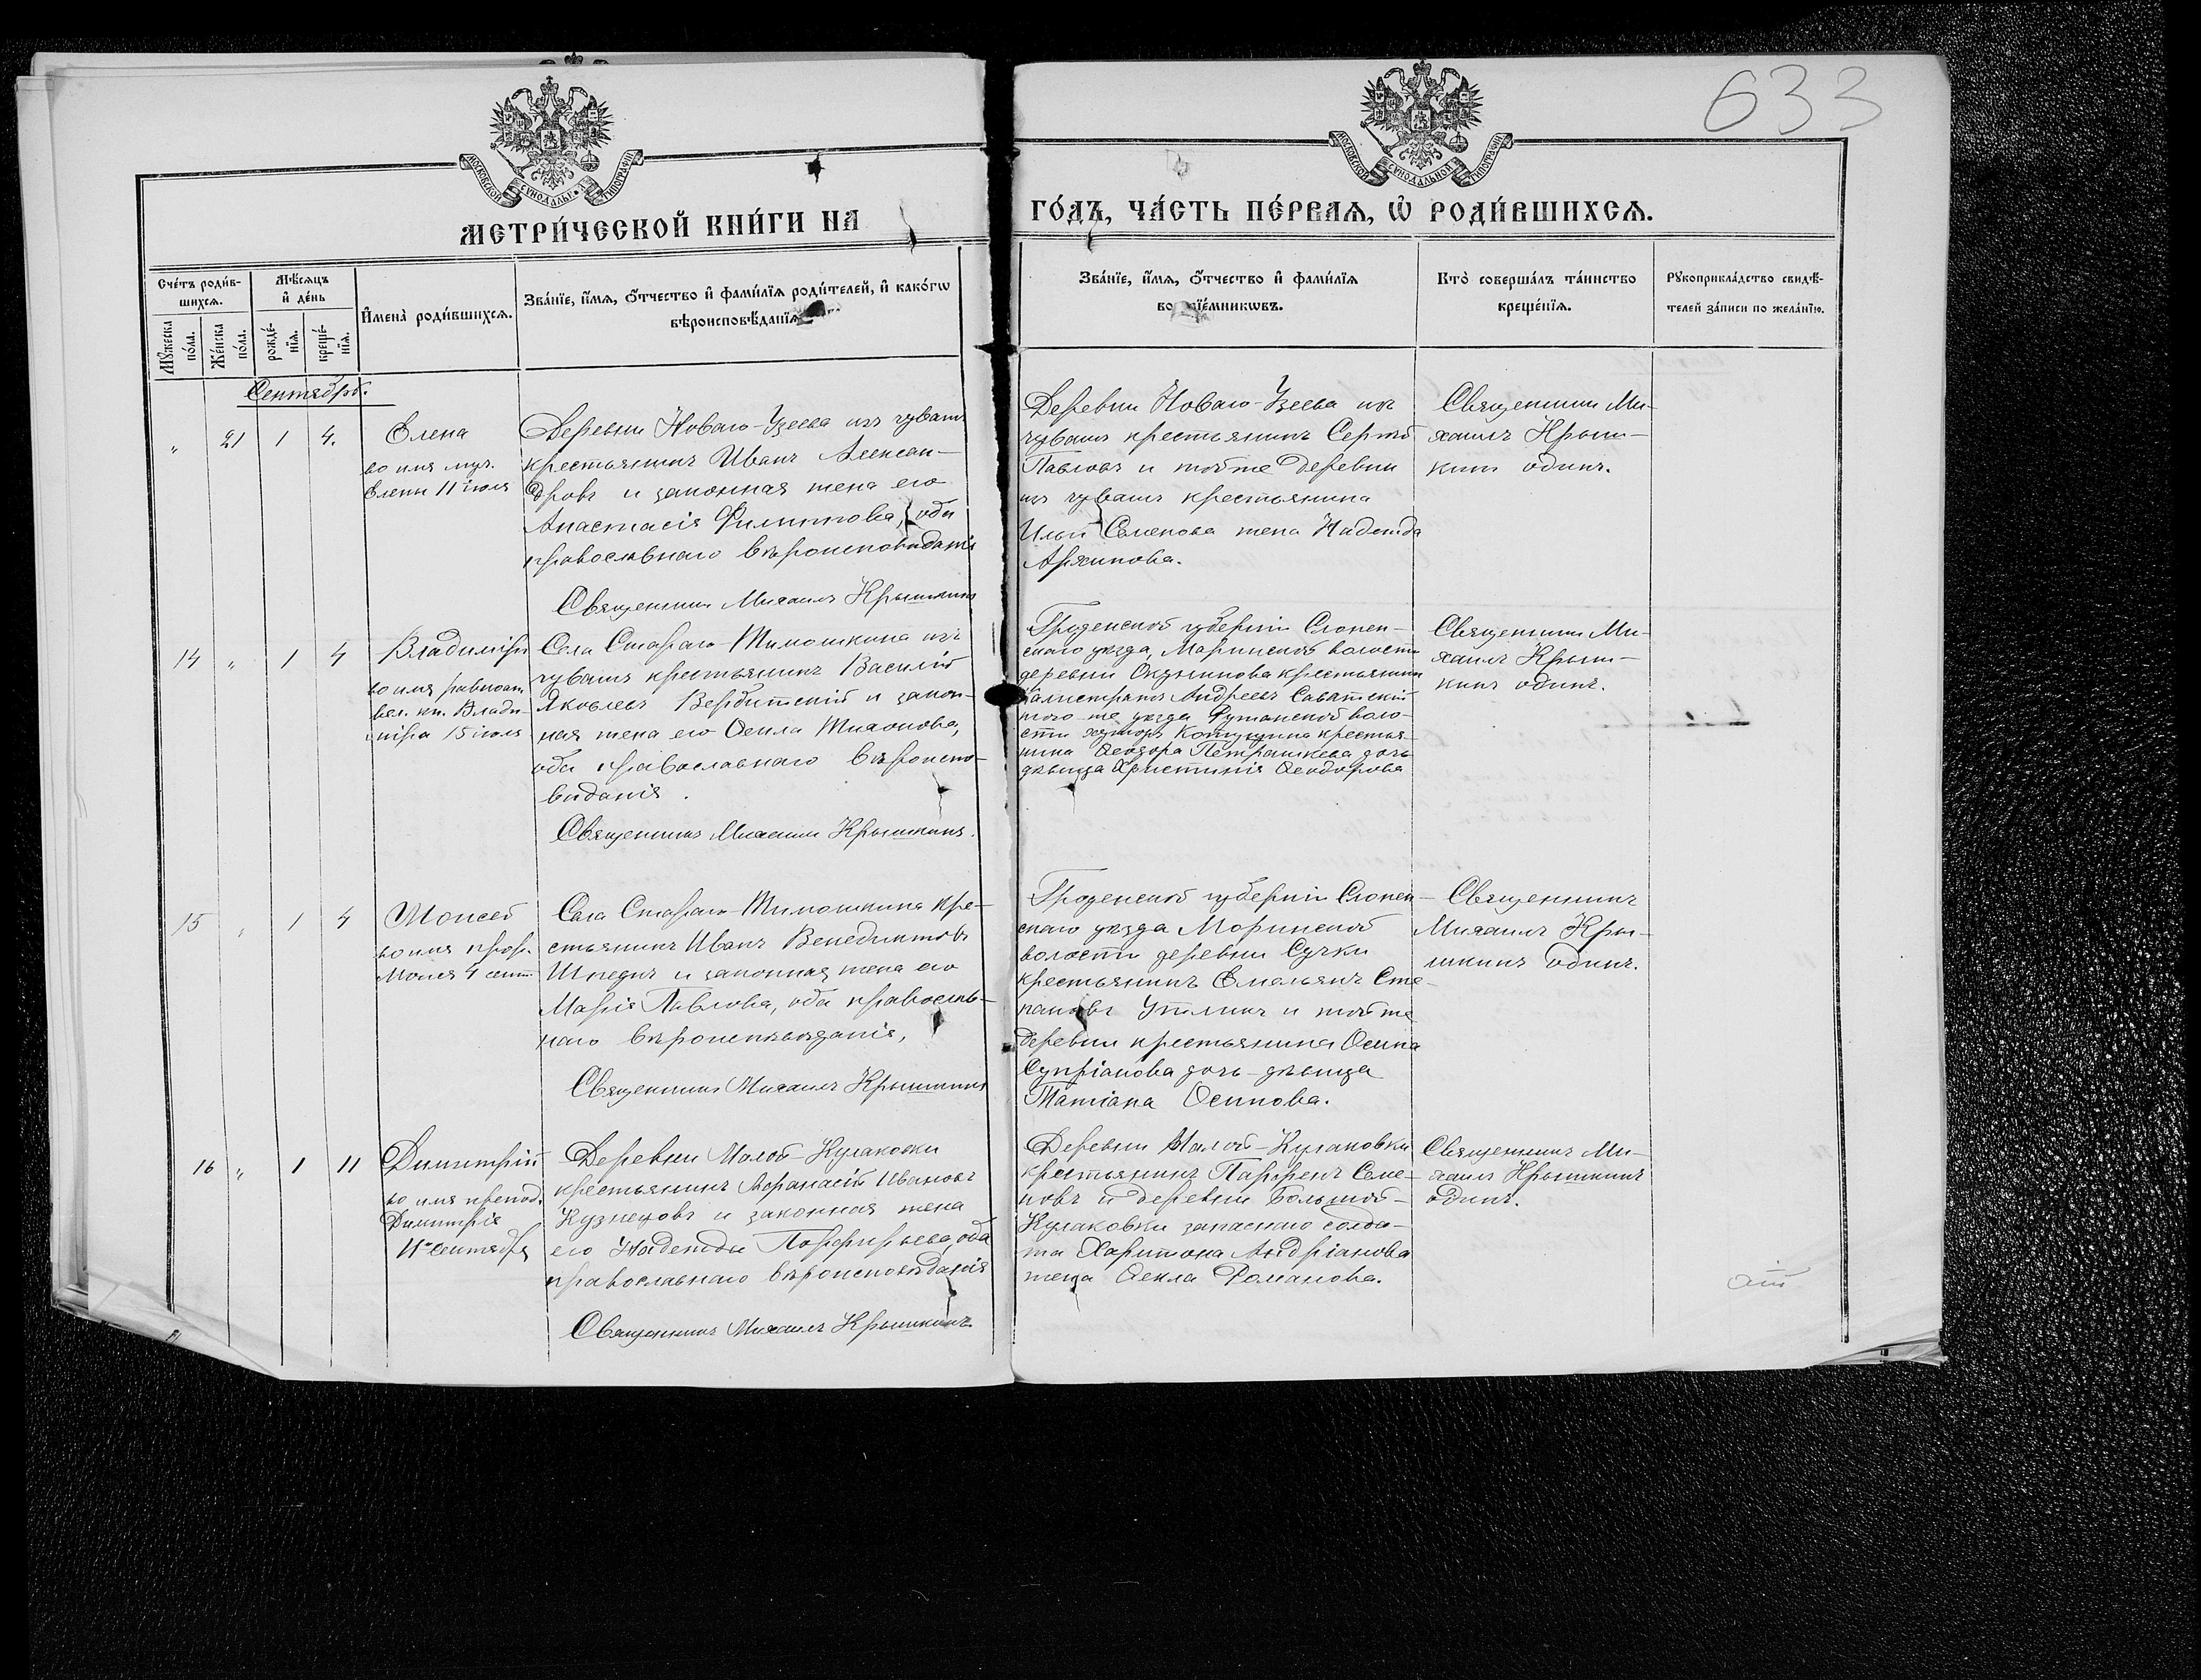 633
МОСКОВСКОЙ СУНОДАЛЬНОЙ ТИПОГРАФІИ
МОСКОВСКОЙ СУНОДАЛЬНОЙ ТИПОГРАФІИ
МЕТРИ́ЧЕСКОЙ КНИ́ГИ НА
ГО́ДЪ, ЧА́СТЬ ПЕ́РВАѦ, Ѡ РОДИ́ВШИХСѦ.
Сче́тъ роди́в-
шихсѧ.
Мꙋ́жеска по́ла.
Же́нска по́ла.
Мѣ́сѧцъ
и҆ де́нь
рожде́нїѧ.
креще́нїѧ.
И҆мена̀ роди́вшихсѧ.
Зва́нїе, и҆́мѧ, ѻ҆́тчество и҆ фами́лїѧ роди́телей, и҆ како́гѡ
вѣроисповѣ́данїѧ
Зва́нїе, и҆́мѧ, ѻ҆́тчество и҆ фами́лїѧ
во нїе́мникѡвъ.
Кто̀ соверша́лъ та́инство
креще́нїѧ.
Рꙋкоприкла́дство свидѣ́-
телей за́писи по жела́нїю.
Сентябрь.
„ 21 1 4.
Елена
во имя муч.
Елены 11 іюля
Деревни Новаго-Узеева изъ чувашъ
крестьянинъ Иванъ Алексан-
дровъ и законная жена его
Анастасія Филиппова, оба
православнаго вѣроисповѣданія
Священникъ Михаилъ Крышкинъ
Деревни Новаго-Узеева изъ
чувашъ крестьянинъ Сергѣй
Павловъ и тойже деревни
изъ чувашъ крестьянина
Ильи Семенова жена Надежда
Архипова.
Священникъ Ми-
хаилъ Крыш-
кинъ одинъ.
14 „ 1 4
Владиміръ
во имя равноап.
вел. кн. Влади-
міра 15 іюля
Села Стараго-Тимошкина изъ
чувашъ крестьянинъ Василій
Яковлевъ Вербитскій и закон-
ная жена его Ѳекла Тихонова,
оба православнаго вѣроиспо-
вѣданія.
Священникъ Михаилъ Крышкинъ.
Гродненской губерніи Слоним-
скаго уѣзда, Маринской волости
деревни Окунинова крестьянинъ
Калистратъ Андреевъ Саватскій
того-же уѣзда воло-
сти хутора крестья-
нина Ѳеодора Петрашкева дочь
дѣвица Христинія Ѳеодорова
Священникъ Ми-
хаилъ Крыш-
кинъ одинъ.
15 „ 1 4
Моисей
во имя прор.
Моисея 4 сент.
Села Стараго-Тимошкина кре-
стьянинъ Иванъ Венедиктовъ
и законная жена его
Марія Павлова, оба православ-
наго вѣроисповѣданія,
Священникъ Михаилъ Крышкинъ
Гродненской губерніи Слоним-
скаго уѣзда Моринской
волости деревни Сучки
крестьянинъ Емельянъ Сте-
пановъ и тойже
деревни крестьянина Осипа
Супріанова дочь-дѣвица
Татіана Осипова.
Священникъ
Михаилъ Кры-
шкинъ одинъ.
16 „ 1 11
Димитрій
во имя препод.
Димитрія
11 сентября
Деревни Малой-Кулаковки
крестьянинъ Аѳанасій Ивановъ
Кузнецовъ и законная жена
его Надежда Порфирьева, оба
православнаго вѣроисповѣданія
Священникъ Михаилъ Крышкинъ.
Деревни Малой-Кулаковки
крестьянинъ Парфенъ Семе-
новъ и деревни Большой-
Кулаковки запаснаго солда-
та Харитона Андріанова
жена Ѳекла Романова.
Священникъ Ми-
хаилъ Крышкинъ
одинъ.